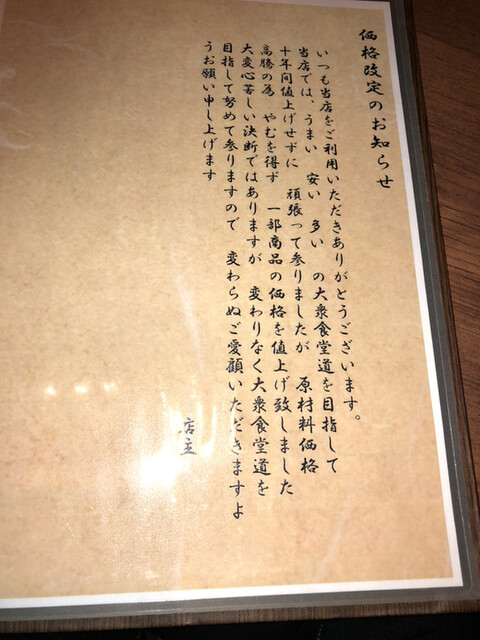 価格改定のお知らせ
いつも当店をご利用いただきありがとうございます。
当店では、うまい 安い 多い の大衆食堂道を目指して
十年間値上げせずに 頑張って参りましたが 原材料価格
高騰の為 やむを得ず 一部商品の価格を値上げ致しました
大変心苦しい決断ではありますが 変わりなく大衆食堂道を
目指して努めて参りますので 変わらぬご愛顧いただきますよ
うお願い申し上げます
店主